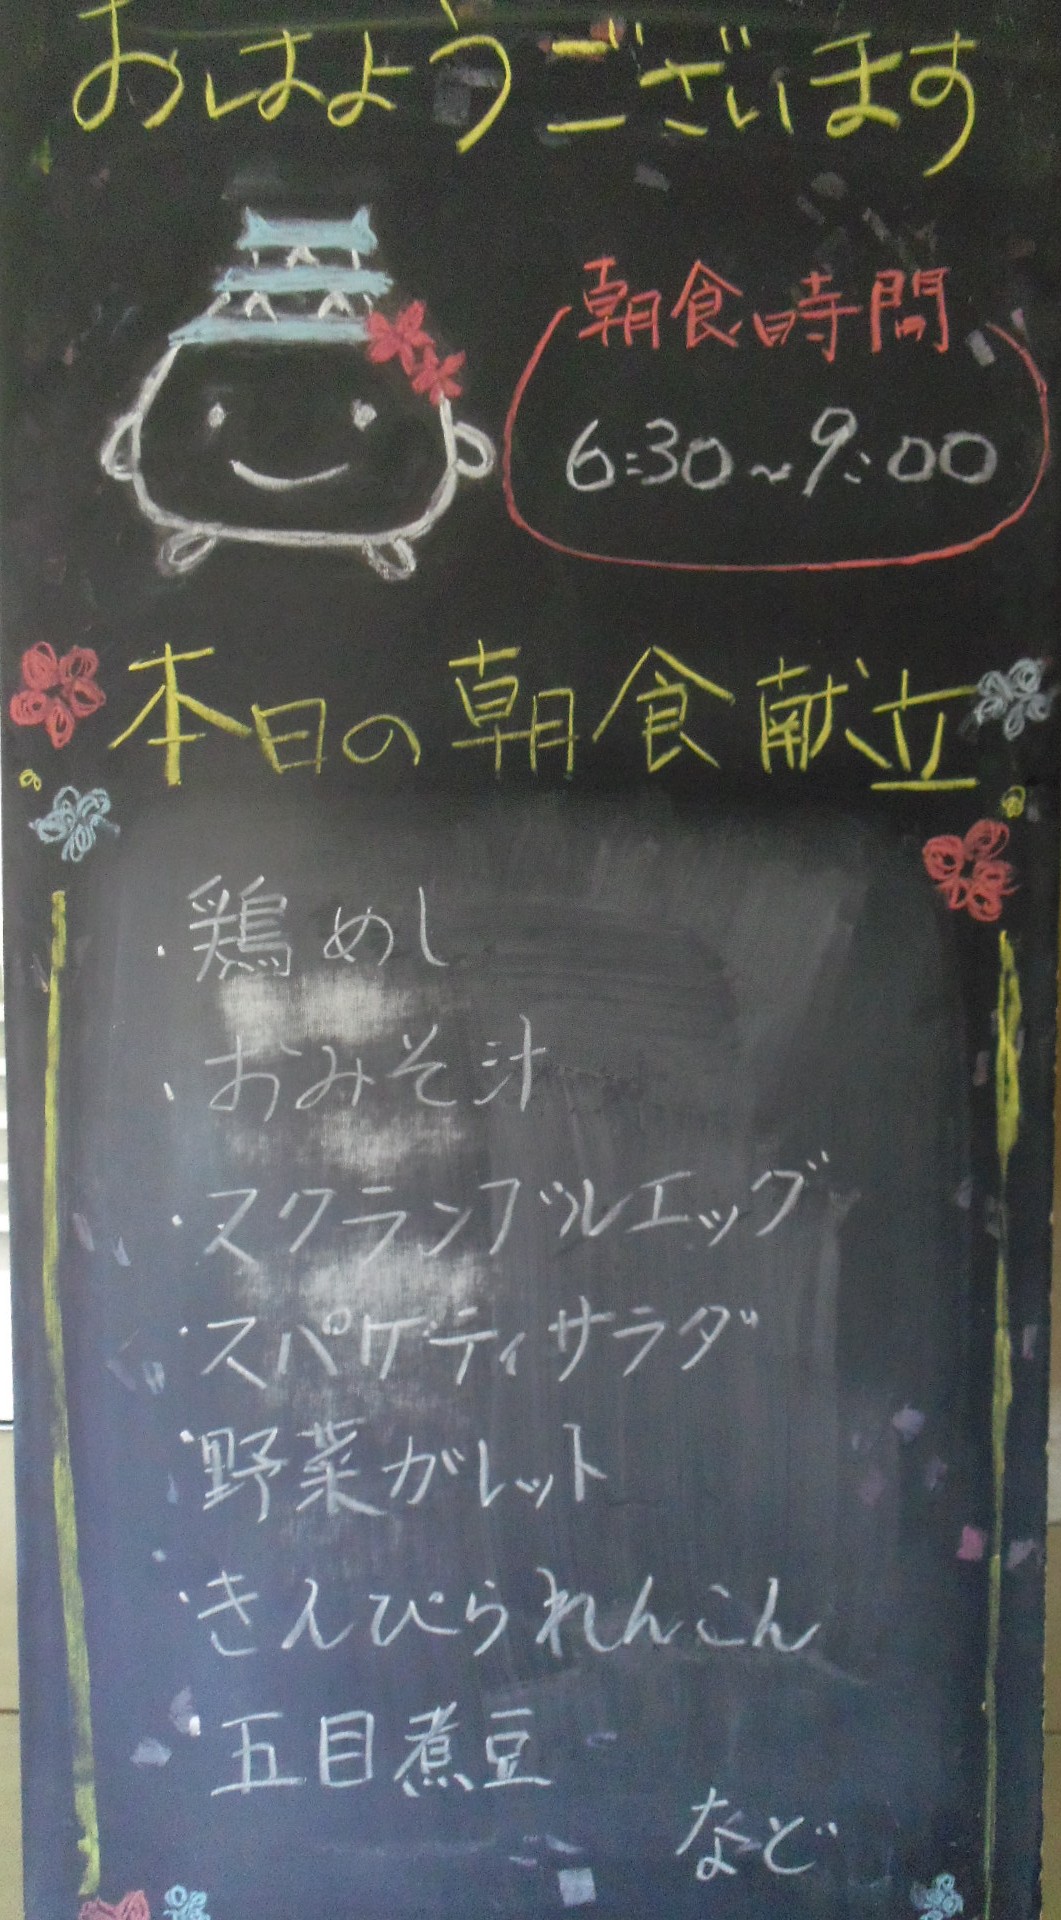 おはようございます
朝食時間
6:30~9:00
本日の朝食献立
・鶏めし
・おみそ汁
・スクランブルエッグ
・スパゲティサラダ
・野菜ガレット
・きんぴられんこん
・五目煮豆
など